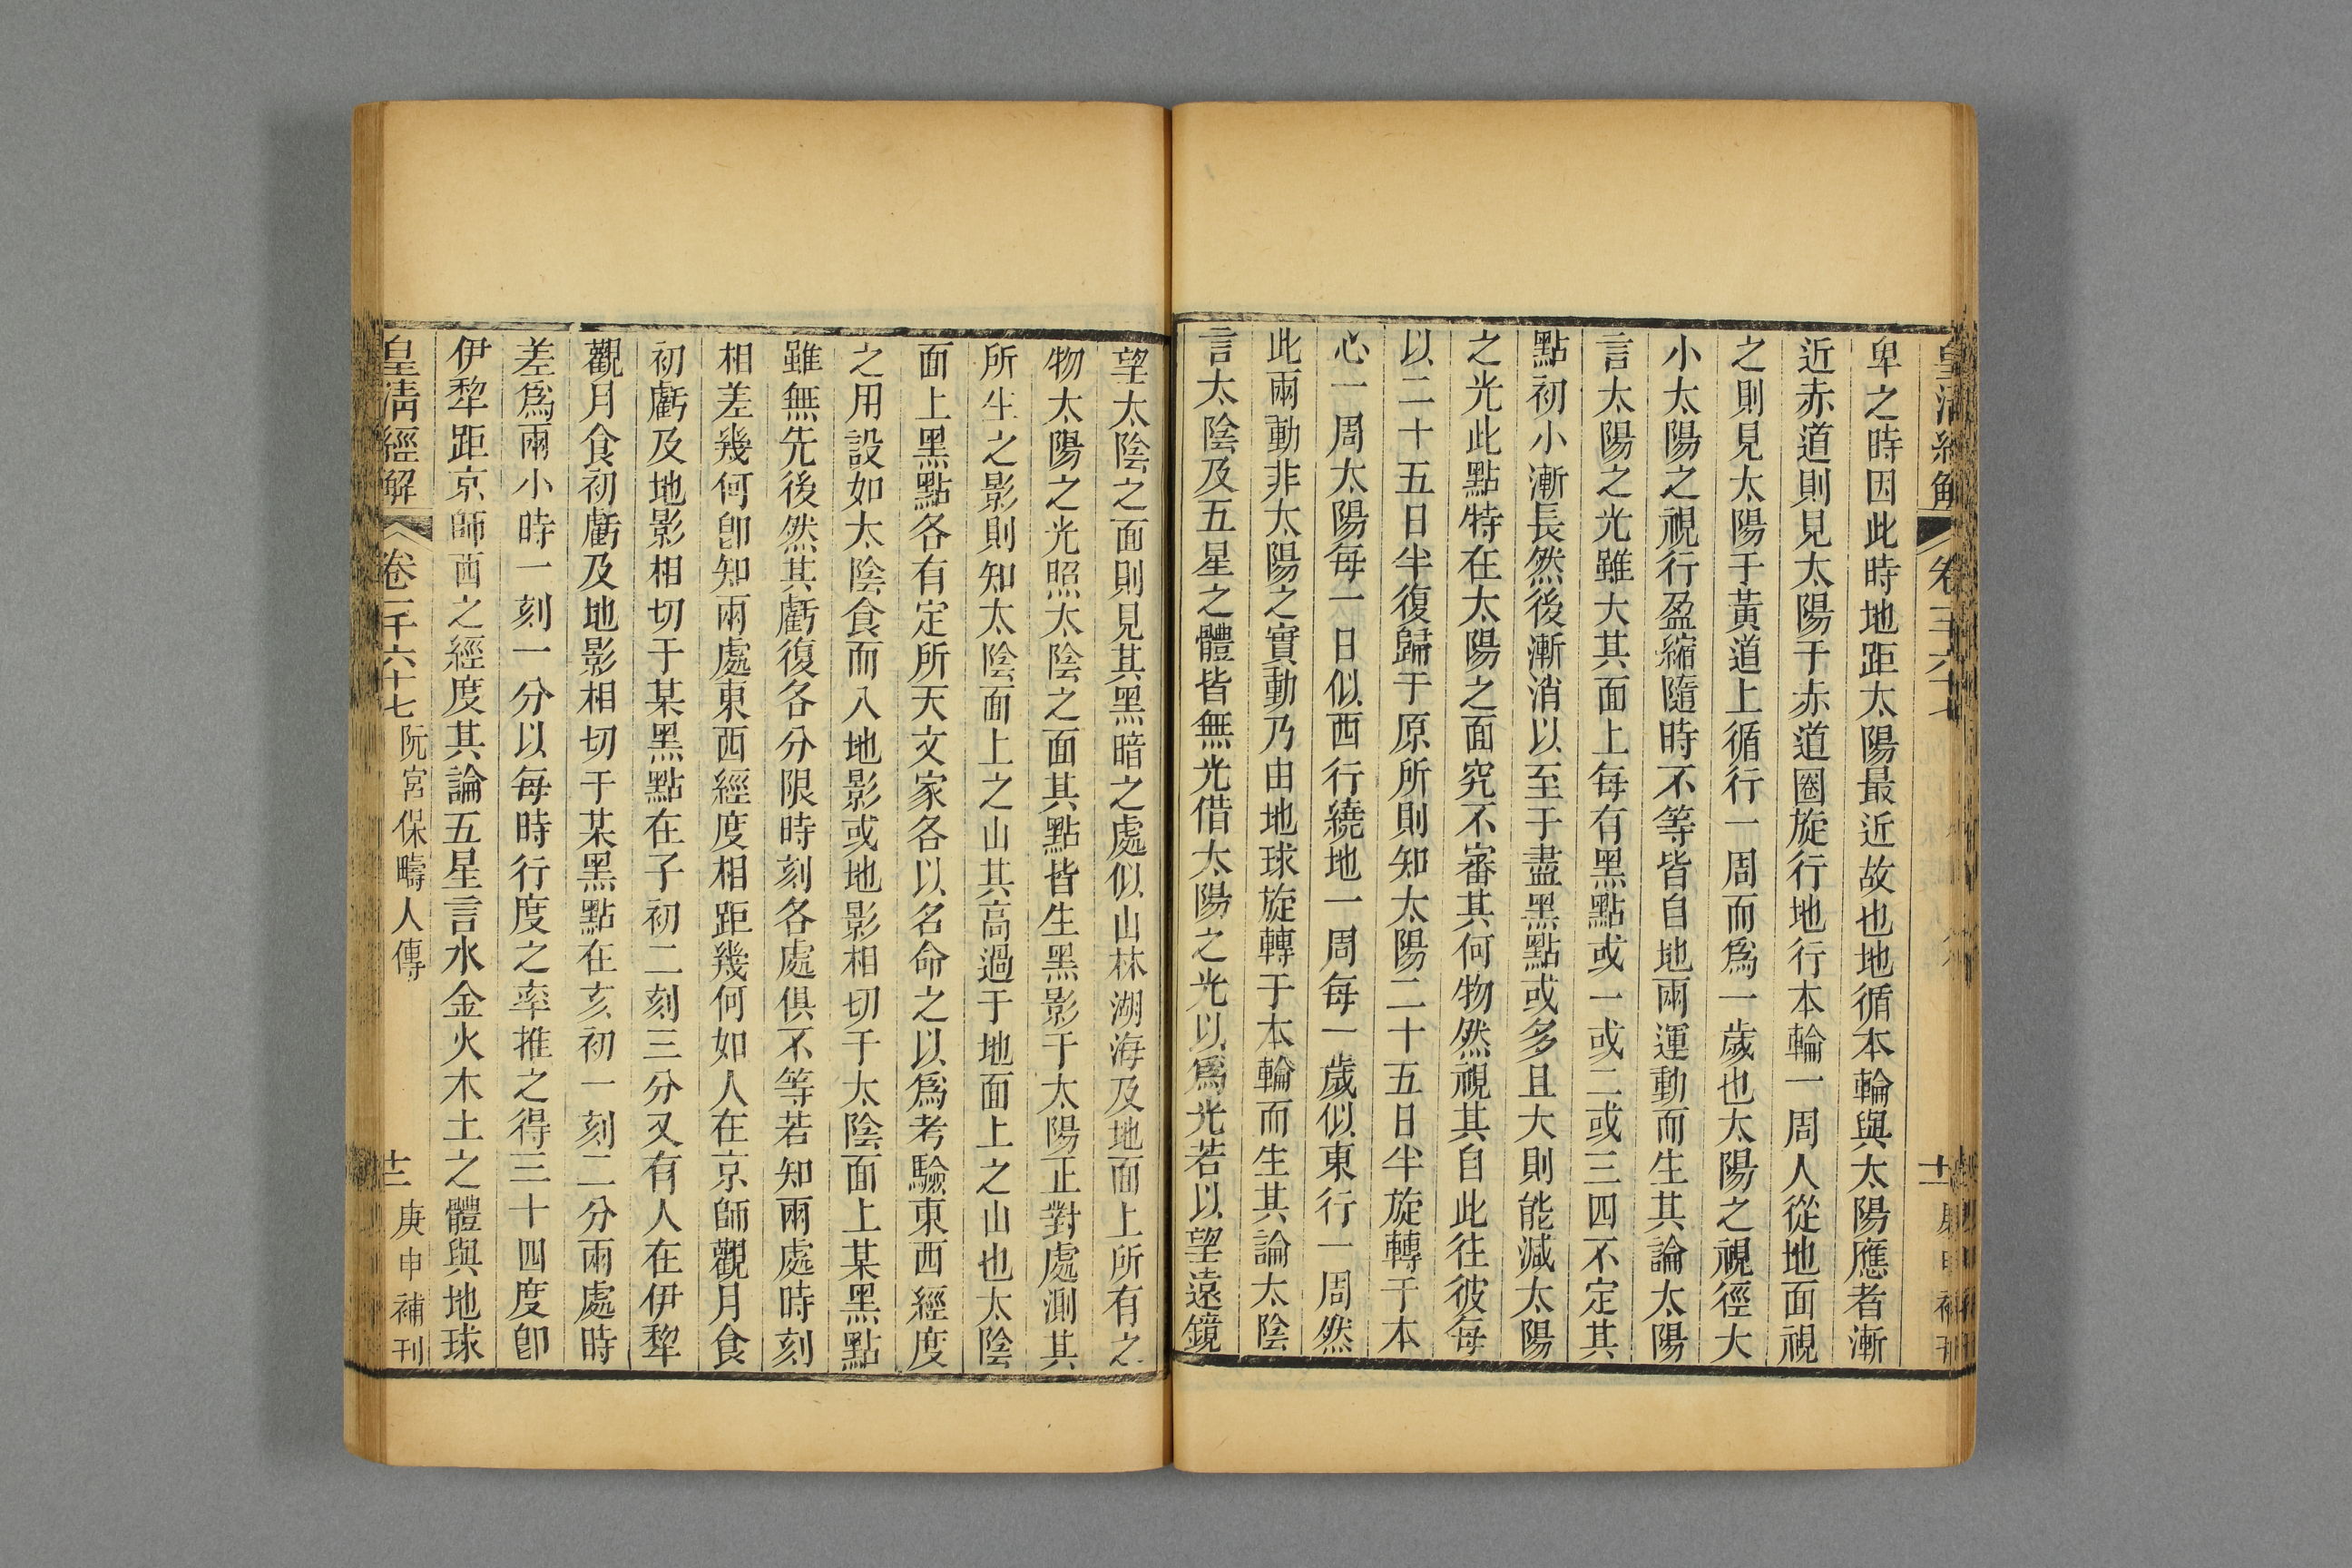 卑之時因此時地距太陽最近故也地循本輪與太陽應者漸
近赤道則見太陽于赤道圈旋行地行本輪一周人從地面視
之則見太陽于黃道上循行一周而爲一歲也太陽之視徑大
小太陽之視行盈縮隨時不等皆自地兩運動而生其論太陽
言太陽之光雖大其面上每有黑點或一或二或三四不定其
點初小漸長然後漸消以至于盡黑點或多且大則能減太陽
之光此點特在太陽之面究不審其何物然視其自此往彼每
以二十五日半復歸于原所則知太陽二十五日半旋轉于本
心一周太陽每一日似西行繞地一周每一歲似東行一周然
此兩動非太陽之實動乃由地球旋轉于本輪而生其論太陰
言太陰及五星之體皆無光借太陽之光以爲光若以望遠鏡
望太陰之面則見其黑暗之處似山林湖海及地面上所有之
物太陽之光照太陰之面其點皆生黑影于太陽正對處測其
所生之影則知太陰面上之山其高過于地面上之山也太陰
面上黑點各有定所天文家各以名命之以爲考驗東西經度
之用設如太陰食而入地影或地影相切于太陰面上某黑點
雖無先後然其虧復各分限時刻各處俱不等若知兩處時刻
相差幾何卽知兩處東西經度相距幾何如人在京師觀月食
初虧及地影相切于某黑點在子初二刻三分又有人在伊犂
觀月食初虧及地影相切于某黑點在亥初一刻二分兩處時
差爲兩小時一刻一分以每時行度之率推之得三十四度卽
伊犂距京師西之經度其論五星言水金火木土之體與地球
皇清經解 卷一千六十七 阮宮保疇人傳 十二 庚申補刊